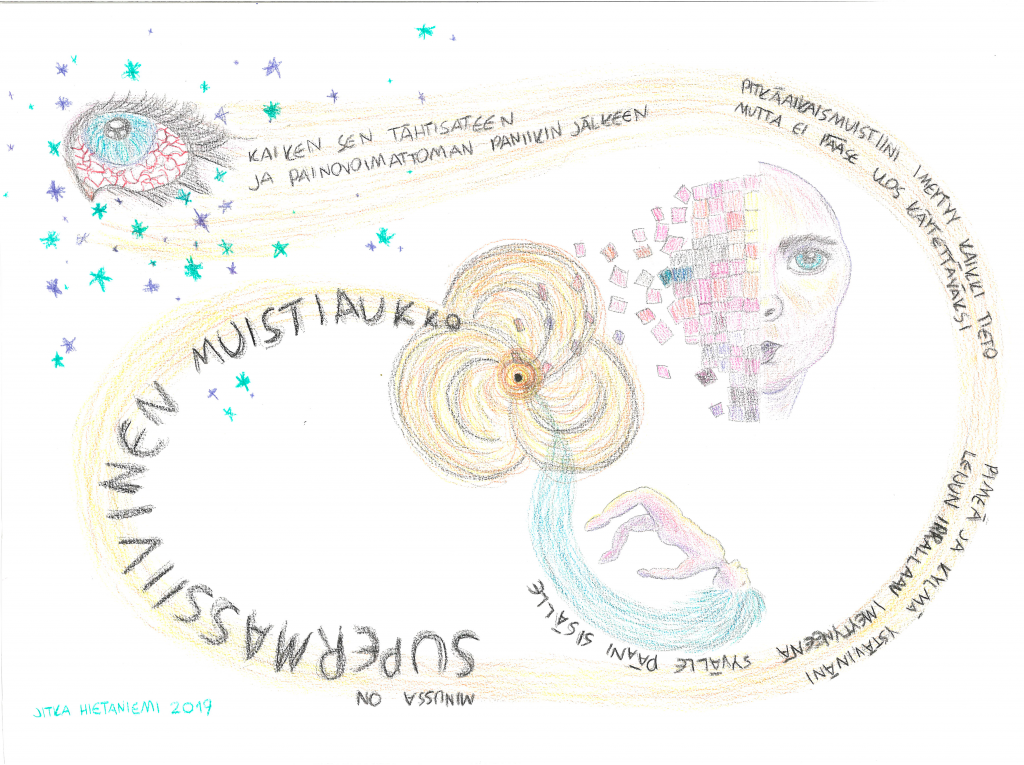 KAIKEN SEN TÄHTISATEEN
JA PAINOVOIMATTOMAN PANIIKIN JÄLKEEN
PITKÄAIKAISMUISTIINI IMEYTYY KAIKKI TIETO
MUTTA EI PÄÄSE ULOS KÄYTETTÄVÄKSI
PIMEÄ JA KYLMÄ YSTÄVINÄNI
LEIJUN IRRALLAAN IMEYTYNEENÄ
SYVÄLLE PÄÄNI SISÄLLE
MINUSSA ON
SUPERMASSIIVINEN MUISTIAUKKO
JITKA HIETANIEMI 2019